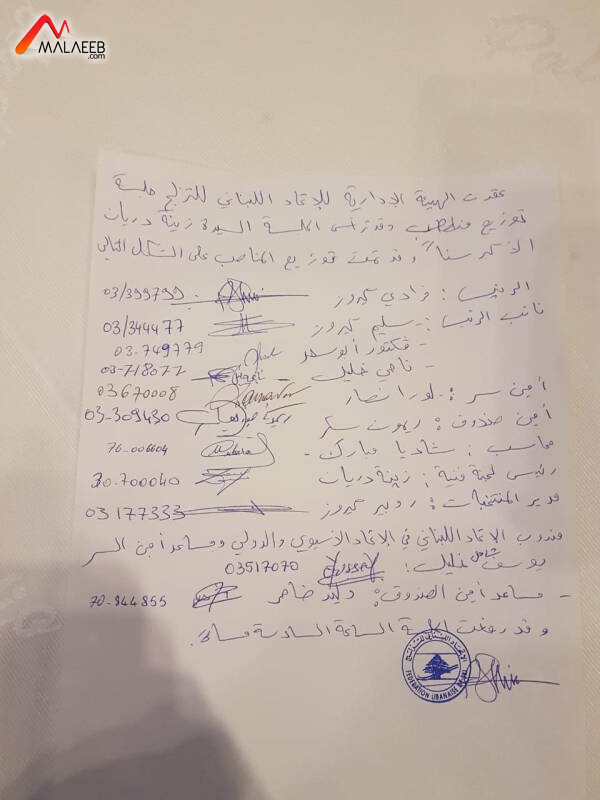 MALAEEB
.com
عقدت الهيئة الادارية للاتحاد اللبناني للتزلج جلسة
توزيع مناصب وقد ترأس الجلسة السيدة زينة دريان
الأكبر سناً، وقد تمت توزيع المناصب على الشكل التالي
الرئيس : فادي كيروز 03/399799
نائب الرئيس : - سليم كيروز 03/344477
- فكتور 03-749779
- ناجي خليل 03-718077
أمين سر : لورا نصار 03670008
أمين صندوق : ريمون 03-309430
محاسب : شاديا مبارك - 76-006604
رئيس لجنة فنية : زينة دريان 30-700040
مدير المنتخبات : روبير كيروز 03177333
مندوب الاتحاد اللبناني في الاتحاد الاسيوي والدولي ومساعد أمين السر
يوسف خليل : 03517070
- مساعد أمين الصندوق : وليد ضاهر 70-944855
وقد رفعت الجلسة الساعة السادسة مساءً.
FEDERATION LIBANAISE DE SKI